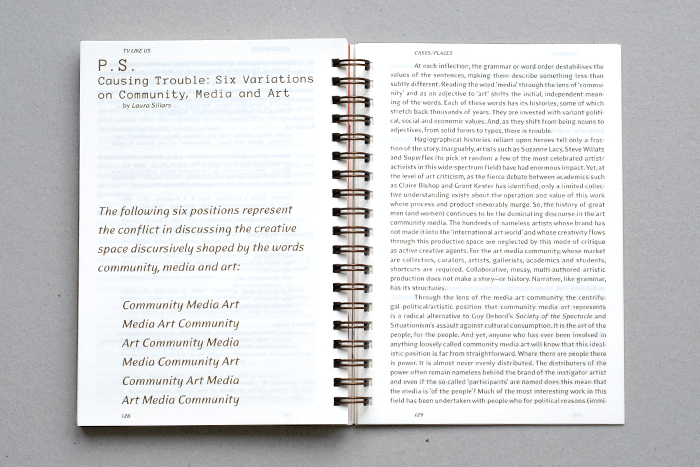 TV LIKE US
P.S.
Causing Trouble: Six Variations
on Community, Media and Art
by Laura Sillars
The following six positions represent
the conflict in discussing the creative
space discursively shaped by the words
community, media and art:
Community Media Art
Media Art Community
Art Community Media
Media Community Art
Community Art Media
Art Media Community
128
CASES/PLACES
At each inflection, the grammar or word order destabilises the
values of the sentences, making them describe something less than
subtly different. Reading the word 'media' through the lens of 'commu-
nity' and as an adjective to 'art' shifts the initial, independent mean-
ing of the words. Each of these words has its histories, some of which
stretch back thousands of years. They are invested with variant politi-
cal, social and economic values. And, as they shift from being nouns to
adjectives, from solid forms to types, there is trouble.
Hagiographical histories reliant upon heroes tell only a frac-
tion of the story. Inarguably, artists such as Suzanne Lacy, Steve Willats
and Superflex (to pick at random a few of the most celebrated artist/
activists in this wide-spectrum field) have had enormous impact. Yet, at
the level of art criticism, as the fierce debate between academics such
as Claire Bishop and Grant Kester has identified, only a limited collec-
tive understanding exists about the operation and value of this work
where process and product inexorably merge. So, the history of great
men (and women) continues to be the dominating discourse in the art
community media. The hundreds of nameless artists whose brand has
not made it into the 'international art world' and whose creativity flows
through this productive space are neglected by this mode of critique
as active creative agents. For the art media community, whose market
are collectors, curators, artists, gallerists, academics and students,
shortcuts are required. Collaborative, messy, multi-authored artistic
production does not make a story—or history. Narrative, like grammar,
has its structures.
Through the lens of the media art community, the centrifu-
gal political/artistic position that community media art represents
is a radical alternative to Guy Debord's Society of the Spectacle and
Situationism's assault against cultural consumption. It is the art of the
people, for the people. And yet, anyone who has ever been involved in
anything loosely called community media art will know that this ideal-
istic position is far from straightforward. Where there are people there
is power. It is almost never evenly distributed. The distributers of the
power often remain nameless behind the brand of the instigator artist
and even if the so-called 'participants' are named does this mean that
the media is 'of the people'? Much of the most interesting work in this
field has been undertaken with people who for political reasons (immi-
129